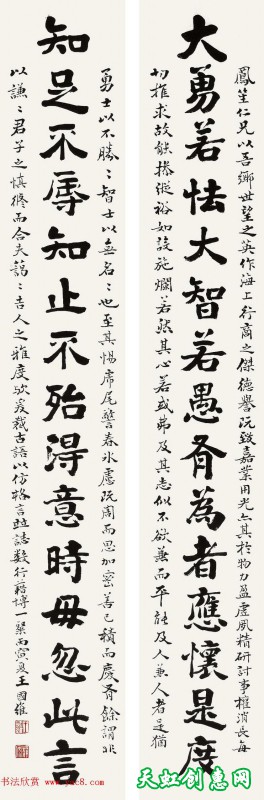 大勇若怯大智若愚有為者應懷是度
知足不辱知止不殆得意時毋忽此言
鳳笙仁兄以吾鄉世望之英作海上行商之傑德譽既致嘉業用光六其於物力盈虛風精研討事權消長每
切推求故能操縱裕如設施爛若然其心若或弗及其志似不欲兼而平能及人兼人者是猶
勇士以不勝〻智士以無名〻也至其惕席尾警春冰慮既周而思加密善已積而慶有餘謂非
以謙〻君子之慎修而合夫藹〻吉人之雅度歟爰截古語以仿格言並誌數行藉博一粲丙寅夏王國維
书法欣赏
天虹创意网